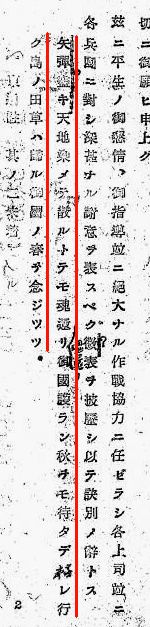 切ニ御願ヒ申上グ
玆ニ平生ノ御懇情、御指導竝ニ絕大ナル作戰協力ニ任ゼラシ各上司竝ニ
各兵團ニ對シ深甚ナル謝意ヲ表スベク微衷ヲ披歷シ以テ訣別ノ辭トス
矢彈盡キ天地染メテ散ルトテモ魂還リ御國護ラン
秋ヲモ待タデ枯レ行ク島ノ青草ハ歸ル御國ノ春ヲ念ジツツ
2